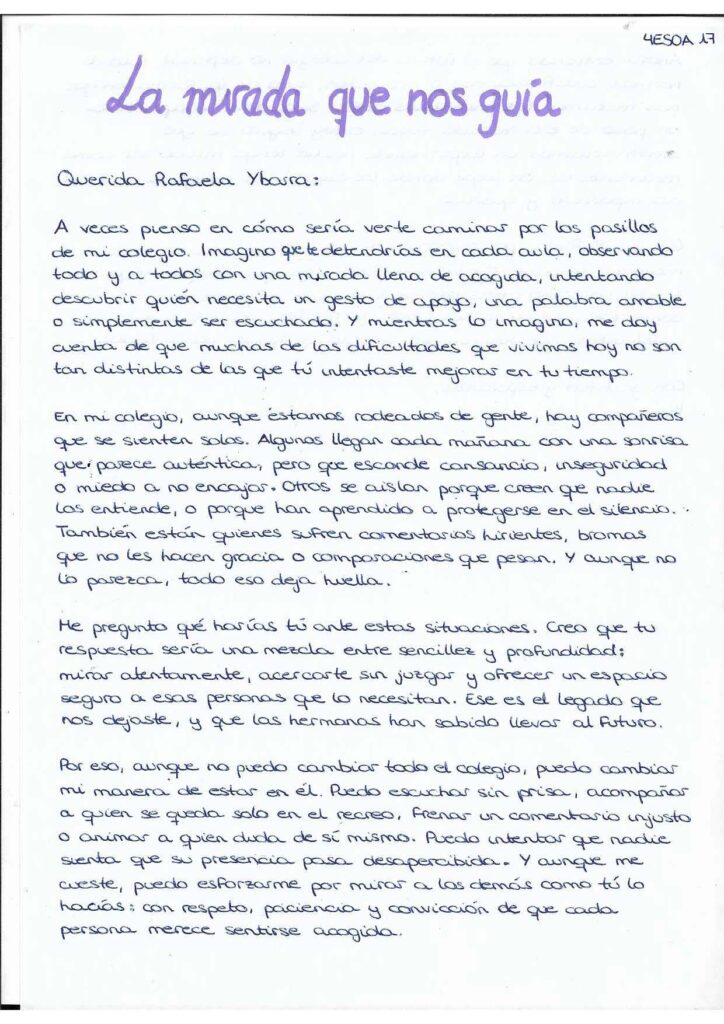 4ESOA 17
La mirada que nos guía
Querida Rafaela Ybarra:
A veces pienso en cómo sería verte caminar por los pasillos
de mi colegio. Imagino que te detendrías en cada aula, observando
todo y a todos con una mirada llena de acogida, intentando
descubrir quién necesita un gesto de apoyo, una palabra amable
o simplemente ser escuchado. Y mientras lo imagino, me doy
cuenta de que muchas de las dificultades que vivimos hoy no son
tan distintas de las que tú intentaste mejorar en tu tiempo.
En mi colegio, aunque estamos rodeados de gente, hay compañeros
que se sienten solos. Algunos llegan cada mañana con una sonrisa
que parece auténtica, pero que esconde cansancio, inseguridad
o miedo a no encajar. Otros se aislan porque creen que nadie
los entiende, o porque han aprendido a protegerse en el silencio.
También están quienes sufren comentarios hirientes, bromas
que no les hacen gracia o comparaciones que pesan. Y aunque no
lo parezca, todo eso deja huella.
Me pregunto qué harías tú ante estas situaciones. Creo que tu
respuesta sería una mezcla entre sencillez y profundidad:
mirar atentamente, acercarte sin juzgar y ofrecer un espacio
seguro a esas personas que lo necesitan. Ese es el legado que
nos dejaste, y que las hermanas han sabido llevar al futuro.
Por eso, aunque no puedo cambiar todo el colegio, puedo cambiar
mi manera de estar en él. Puedo escuchar sin prisa, acompañar
a quien se queda solo en el recreo, frenar un comentario injusto
o animar a quien duda de sí mismo. Puedo intentar que nadie
sienta que su presencia pasa desapercibida. Y aunque me
cueste, puedo esforzarme por mirar a los demás como tú lo
hacías: con respeto, paciencia y convicción de que cada
persona merece sentirse acogida.